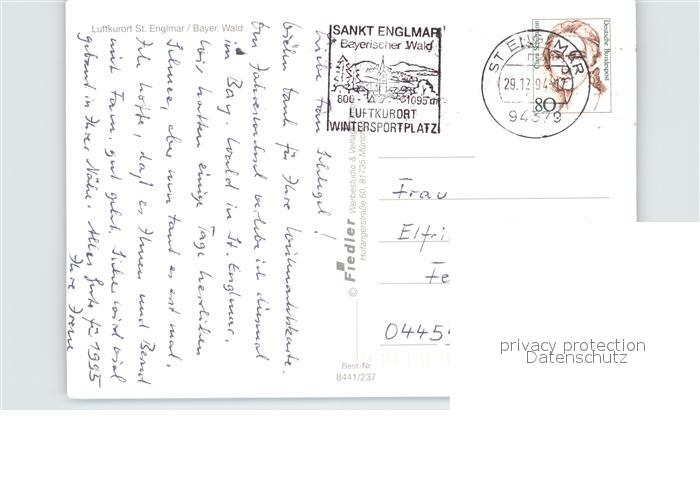 Luftkurort St. Englmar / Bayer. Wald
Liebe Frau Schlegel!
Vielen Dank für Ihre Weihnachtskarte.
Den Jahreswechsel verlebe ich diesmal
im Bay. Wald in St. Englmar.
Wir hatten einige Tage herrlichen
Schnee, aber nun taut es erst mal.
Ich hoffe, daß es Ihnen und Bernd
mit Fam. gut geht. Sicher wird viel
gebaut in Ihrer Nähe. Alles Gute für 1995
Ihre Irene
© Fiedler Werbestudio & Verlag
Hofangerstraße 60, 81735 München
Best.-Nr.
8441/237
SANKT ENGLMAR
Bayerischer Wald
800 - 1095 m
LUFTKURORT
WINTERSPORTPLATZ
ST ENGLMAR
29.12.94
94379
Deutsche Bundespost
80
Frau
Elfri
Fe
0445
privacy protection
Datenschutz